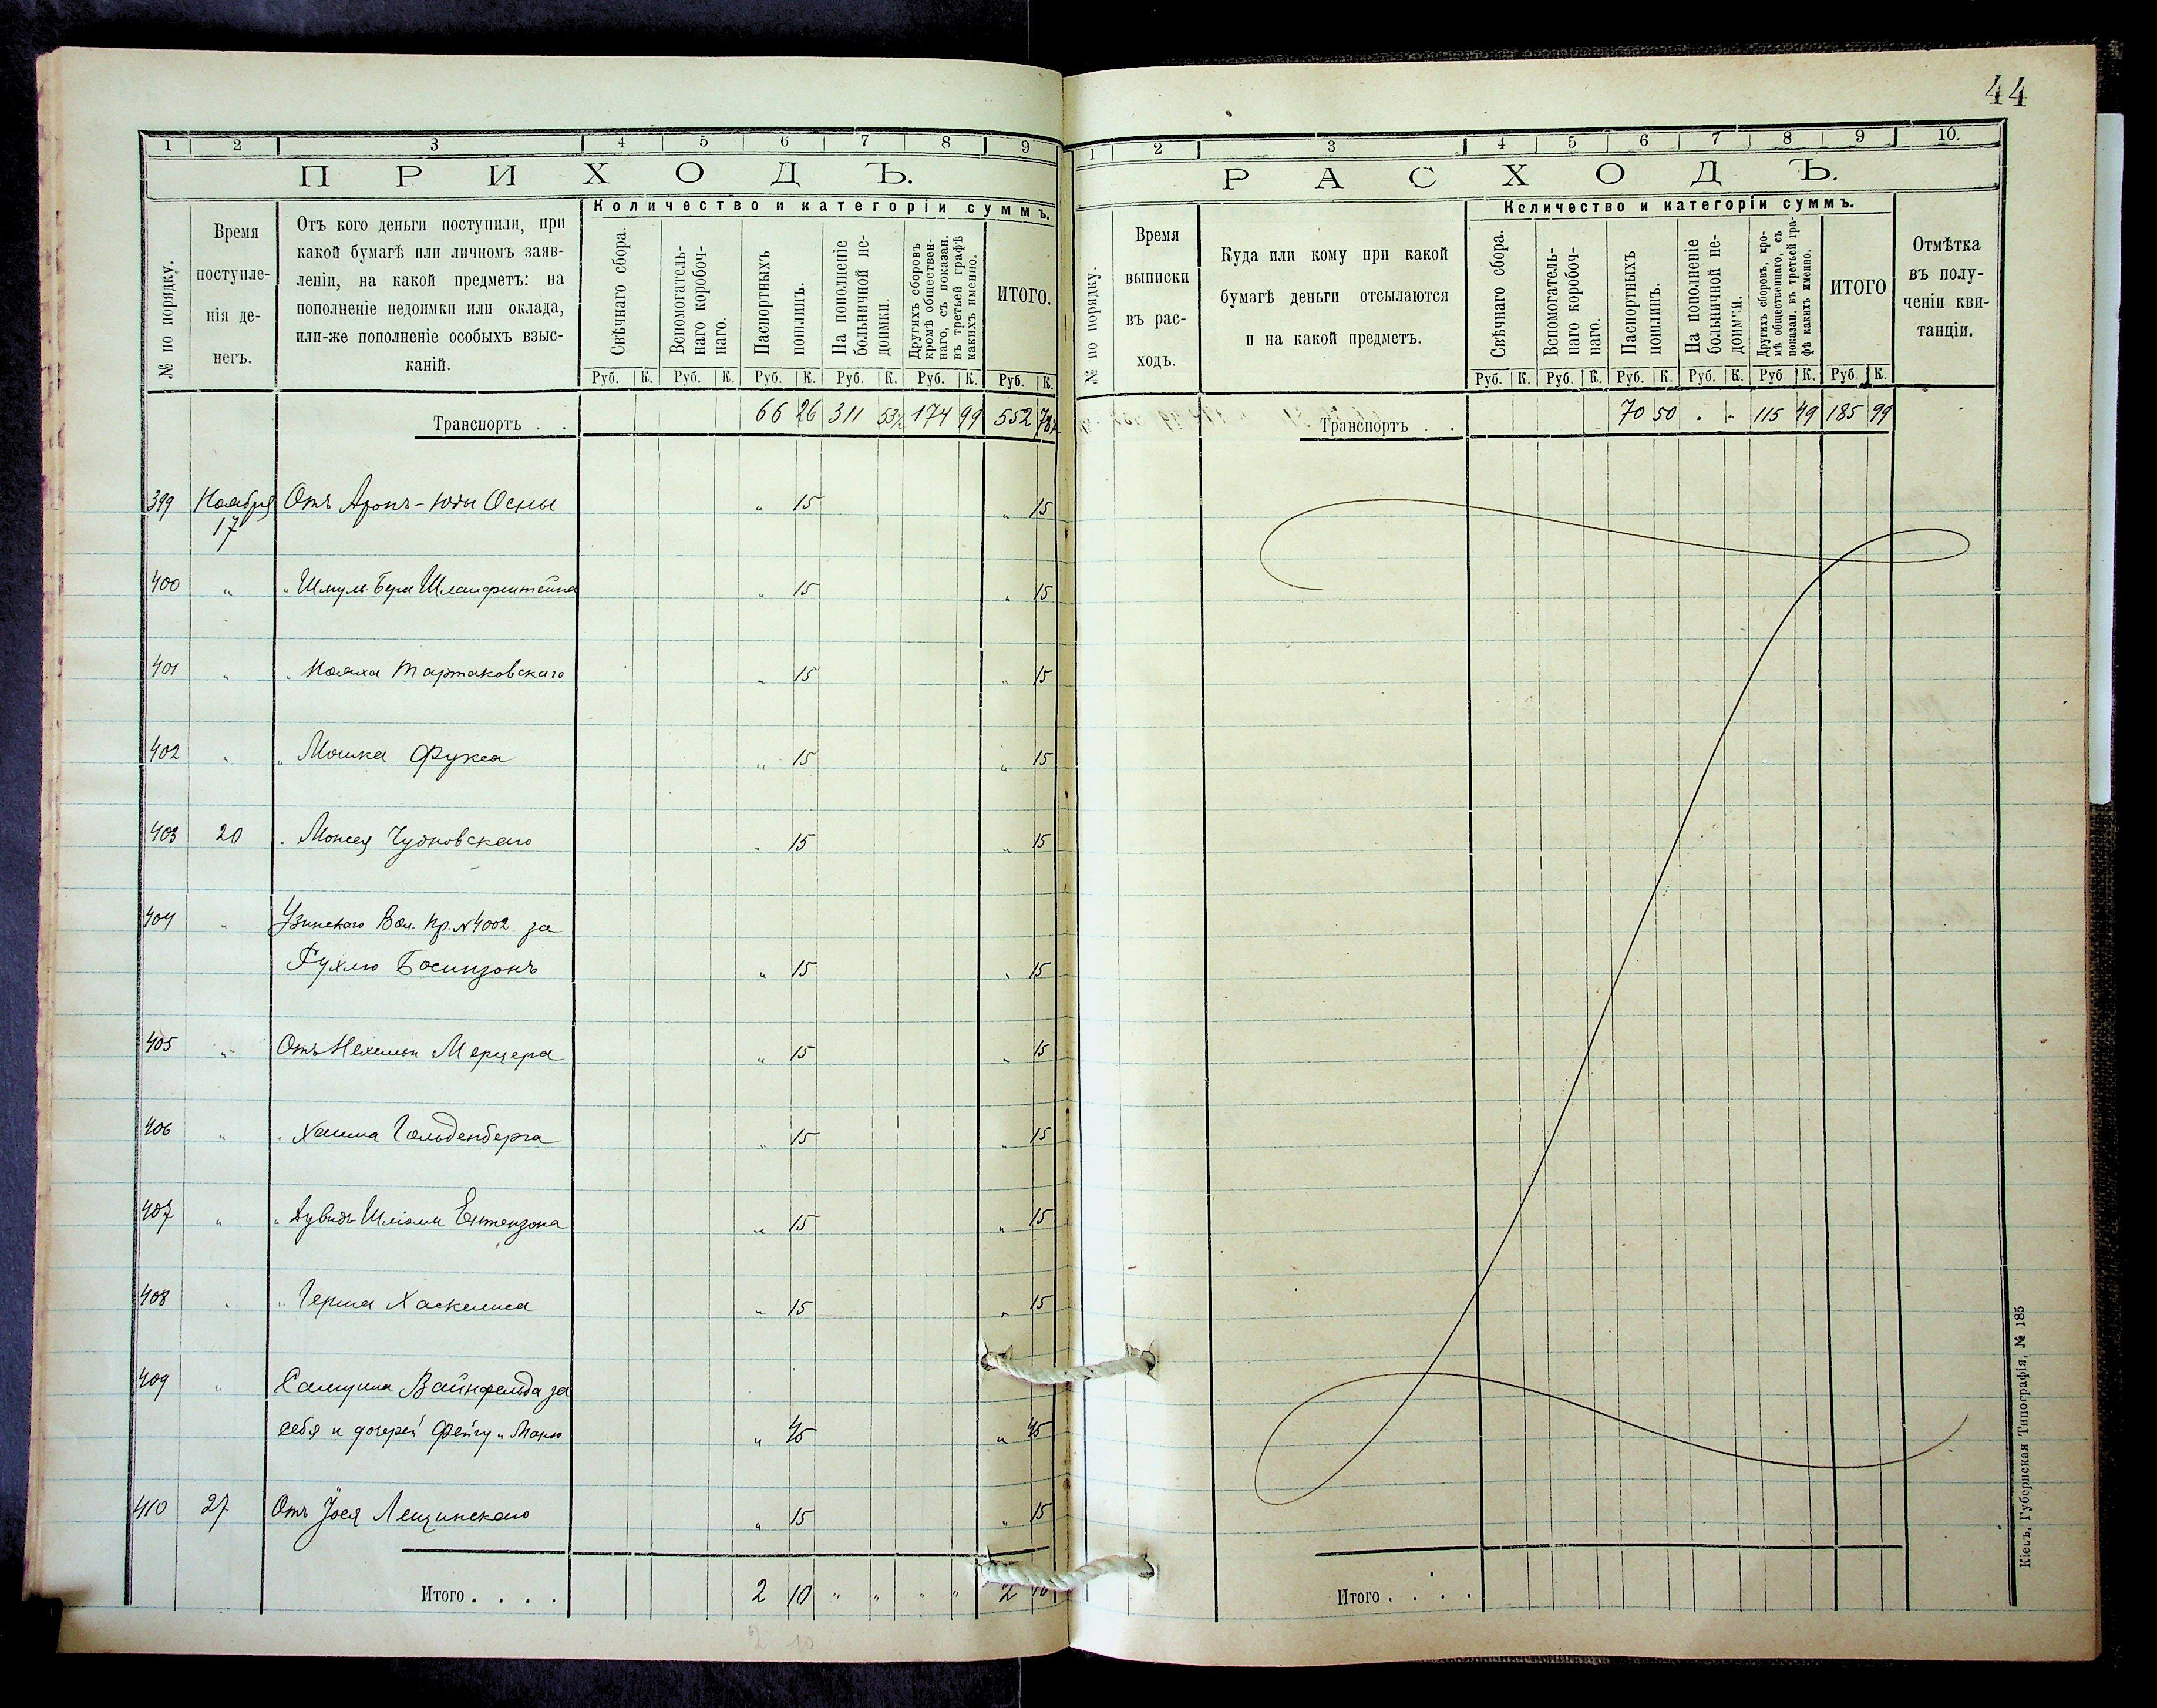 44
1 2 3 4 5 6 7 8 9
ПРИХОДЪ.
№ по порядку.
Время поступле-
нія де-
негъ.
Отъ кого деньги поступили, при
какой бумагѣ или личномъ заяв-
леніи, на какой предметъ: на
пополненіе недоимки или оклада,
или-же пополненіе особыхъ взыс-
каній.
Количество и категоріи суммъ.
Свѣчнаго сбора.
Вспомогатель-
наго коробоч-
наго.
Паспортныхъ
пошлинъ.
На пополненіе
больничной не-
доимки.
Другихъ сборовъ
кромѣ обществен-
наго, съ показан.
въ третьей графѣ
какихъ именно.
ИТОГО.
Руб. К. Руб. К. Руб. К. Руб. К. Руб. К. Руб. К.
Транспортъ . . 66 26 311 53½ 174 99 552 78½
399 Ноября 17 Отъ Аронъ-Юды Осны " 15 " 15
400 " " Шмуль-Бера " 15 " 15
401 " " Ноаха Тартаковскаго " 15 " 15
402 " " Мошка Фукса " 15 " 15
403 20 " Моисея Чудновскаго " 15 " 15
404 " Узинскаго Вол. Пр. № 4002 за
Рухлю Босинзонъ " 15 " 15
405 " Отъ Мерцера " 15 " 15
406 " " Хаима Гольденберга " 15 " 15
407 " " Дувидъ-Шліомы " 15 " 15
408 " " Герша Хаскелиса " 15 " 15
409 " Самуила Вайнфельда за
себя и дочерей Фейгу и Маню " 45 " 45
410 27 Отъ Іося Лещинскаго " 15 " 15
Итого . . . . 2 10 " " " " 2 10
2 10
1 2 3 4 5 6 7 8 9 10.
РАСХОДЪ.
№ по порядку.
Время
выписки
въ рас-
ходъ.
Куда или кому при какой
бумагѣ деньги отсылаются
и на какой предметъ.
Количество и категоріи суммъ.
Свѣчнаго сбора.
Вспомогатель-
наго коробоч-
наго.
Паспортныхъ
пошлинъ.
На пополненіе
больничной не-
доимки.
Другихъ сборовъ, кро-
мѣ общественнаго, съ
показан. въ третьей гра-
фѣ какихъ именно.
ИТОГО
Отмѣтка
въ полу-
ченіи кви-
танціи.
Руб. К. Руб. К. Руб. К. Руб. К. Руб К. Руб. К.
Транспортъ . . 70 50 " " 115 49 185 99
Итого . . . .
Кіевъ, Губернская Типографія, № 185